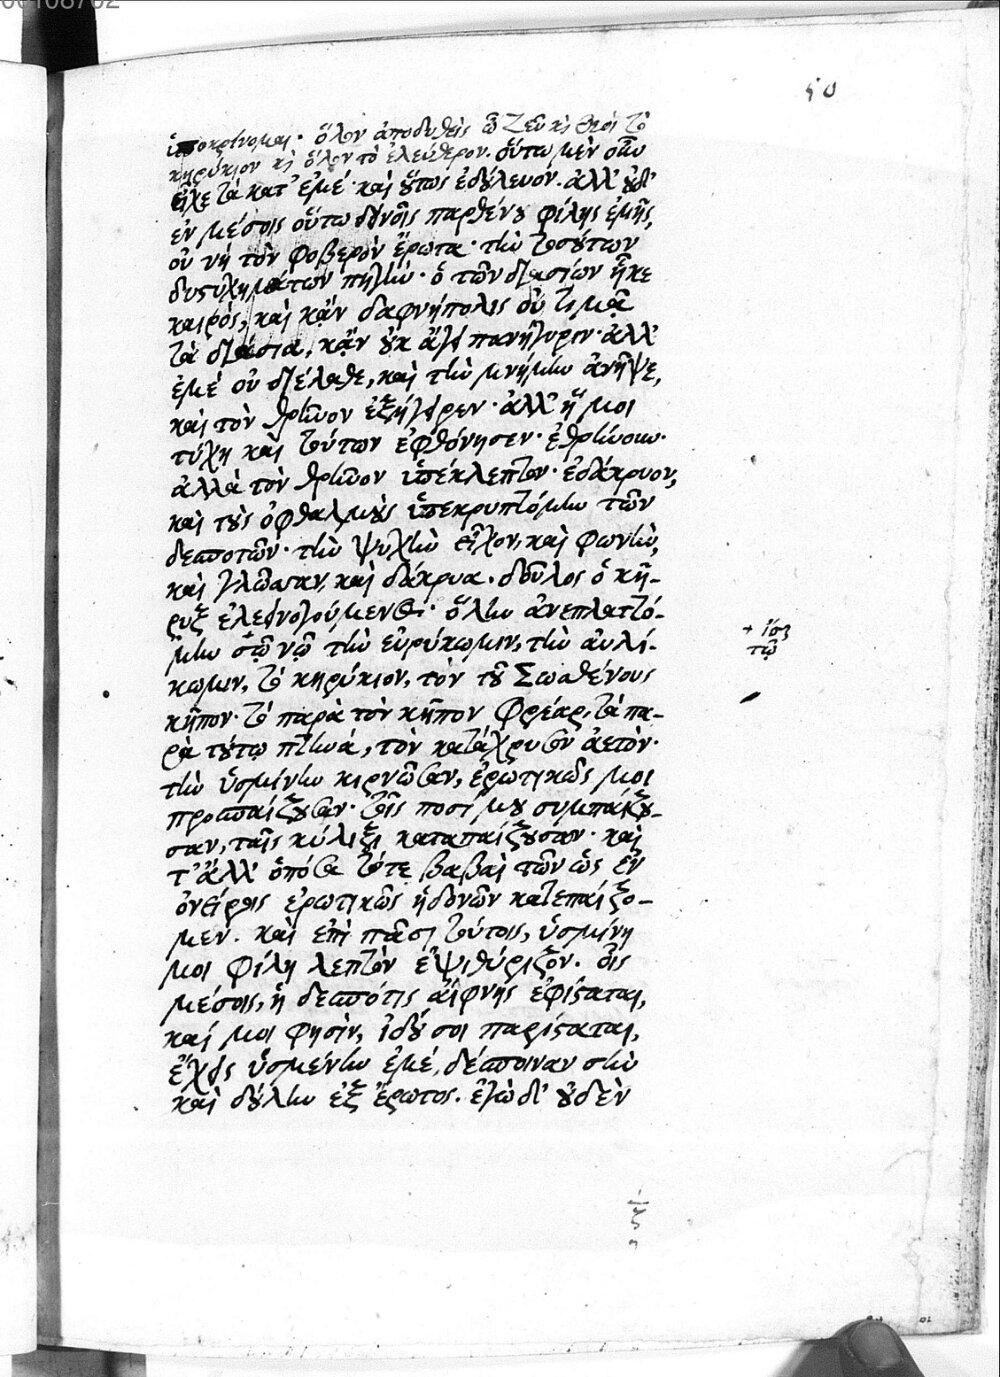 00108702
50
ὑποκρίνομαι· ὅλον ἀποδυθεὶς ὦ Ζεῦ καὶ θεοὶ τὸ
κηρύκιον καὶ ὅλον τὸ ἐλεύθερον. οὕτω μὲν οὖν
εἶχε τὰ κατ' ἐμέ· καὶ οὕτως ἐδούλευον. ἀλλ' οὐδ'
ἐν μέσοις οὕτω δεινοῖς παρθένου φίλης ἐμῆς,
οὐ νὴ τὸν φοβερὸν ἔρωτα· τὴν τοσούτων
δυστυχημάτων πηγήν· ὁ τῶν διασίων ἧκε
καιρὸς, καὶ κἂν δαφνήπολις οὐ τιμᾷ
τὰ διάσια, κἂν οὐκ ἄγει πανήγυριν· ἀλλ'
ἐμὲ οὐ διέλαθε, καὶ τὴν μνήμην ἀνῆψε,
καὶ τὸν θρῆνον ἐξήγειρεν· ἀλλ' ἥ μοι
τύχη καὶ τούτων ἐφθόνησεν· ἐθρήνουν·
ἀλλὰ τὸν θρῆνον ὑπέκλεπτον· ἐδάκρυον,
καὶ τοὺς ὀφθαλμοὺς ὑπεκρυπτόμην τῶν
δεσποτῶν· τὴν ψυχὴν εἶχον, καὶ φωνὴν,
καὶ γλῶσσαν, καὶ δάκρυα. δοῦλος ὁ κή-
ρυξ ἐλεεινολογούμενος· ὅλην ἀνεπλαττό-
μην τῷ νῷ τὴν εὐρύκωμιν, τὴν αὐλί-
κωμιν, τὸ κηρύκιον, τὸν τοῦ Σωσθένους
κῆπον· τὸ παρὰ τὸν κῆπον φρέαρ, τὰ πα-
ρὰ τούτῳ πτηνά, τὸν κατάχρυσον ἀετὸν·
τὴν ὑσμίνην κιρνῶσαν, ἐρωτικῶς μοι
προσπαίζουσαν· τοῖς ποσί μου συμπαίζου-
σαν, ταῖς κύλιξι καταπαίζουσαν· καὶ
τ' ἄλλ' ὁπόσα τότε βαβαὶ τῶν ὡς ἐν
ὀνείροις ἐρωτικῶς ἡδονῶν κατεπαίζο-
μεν. καὶ ἐπὶ πᾶσι τούτοις, ὑσμίνη
μοι φίλη λεπτὸν ἐψιθύριζον. οἷς
μέσοις, ἡ δεσπότις αἴφνης ἐφίσταται,
καί μοι φησὶν, ἰδού σοι παρίσταται,
ἔχεις ὑσμίνην ἐμέ, δέσποιναν σὴν
καὶ δούλην ἐξ ἔρωτος. ἐγὼ δ' οὐδὲν
+ ἴσως
τῷ